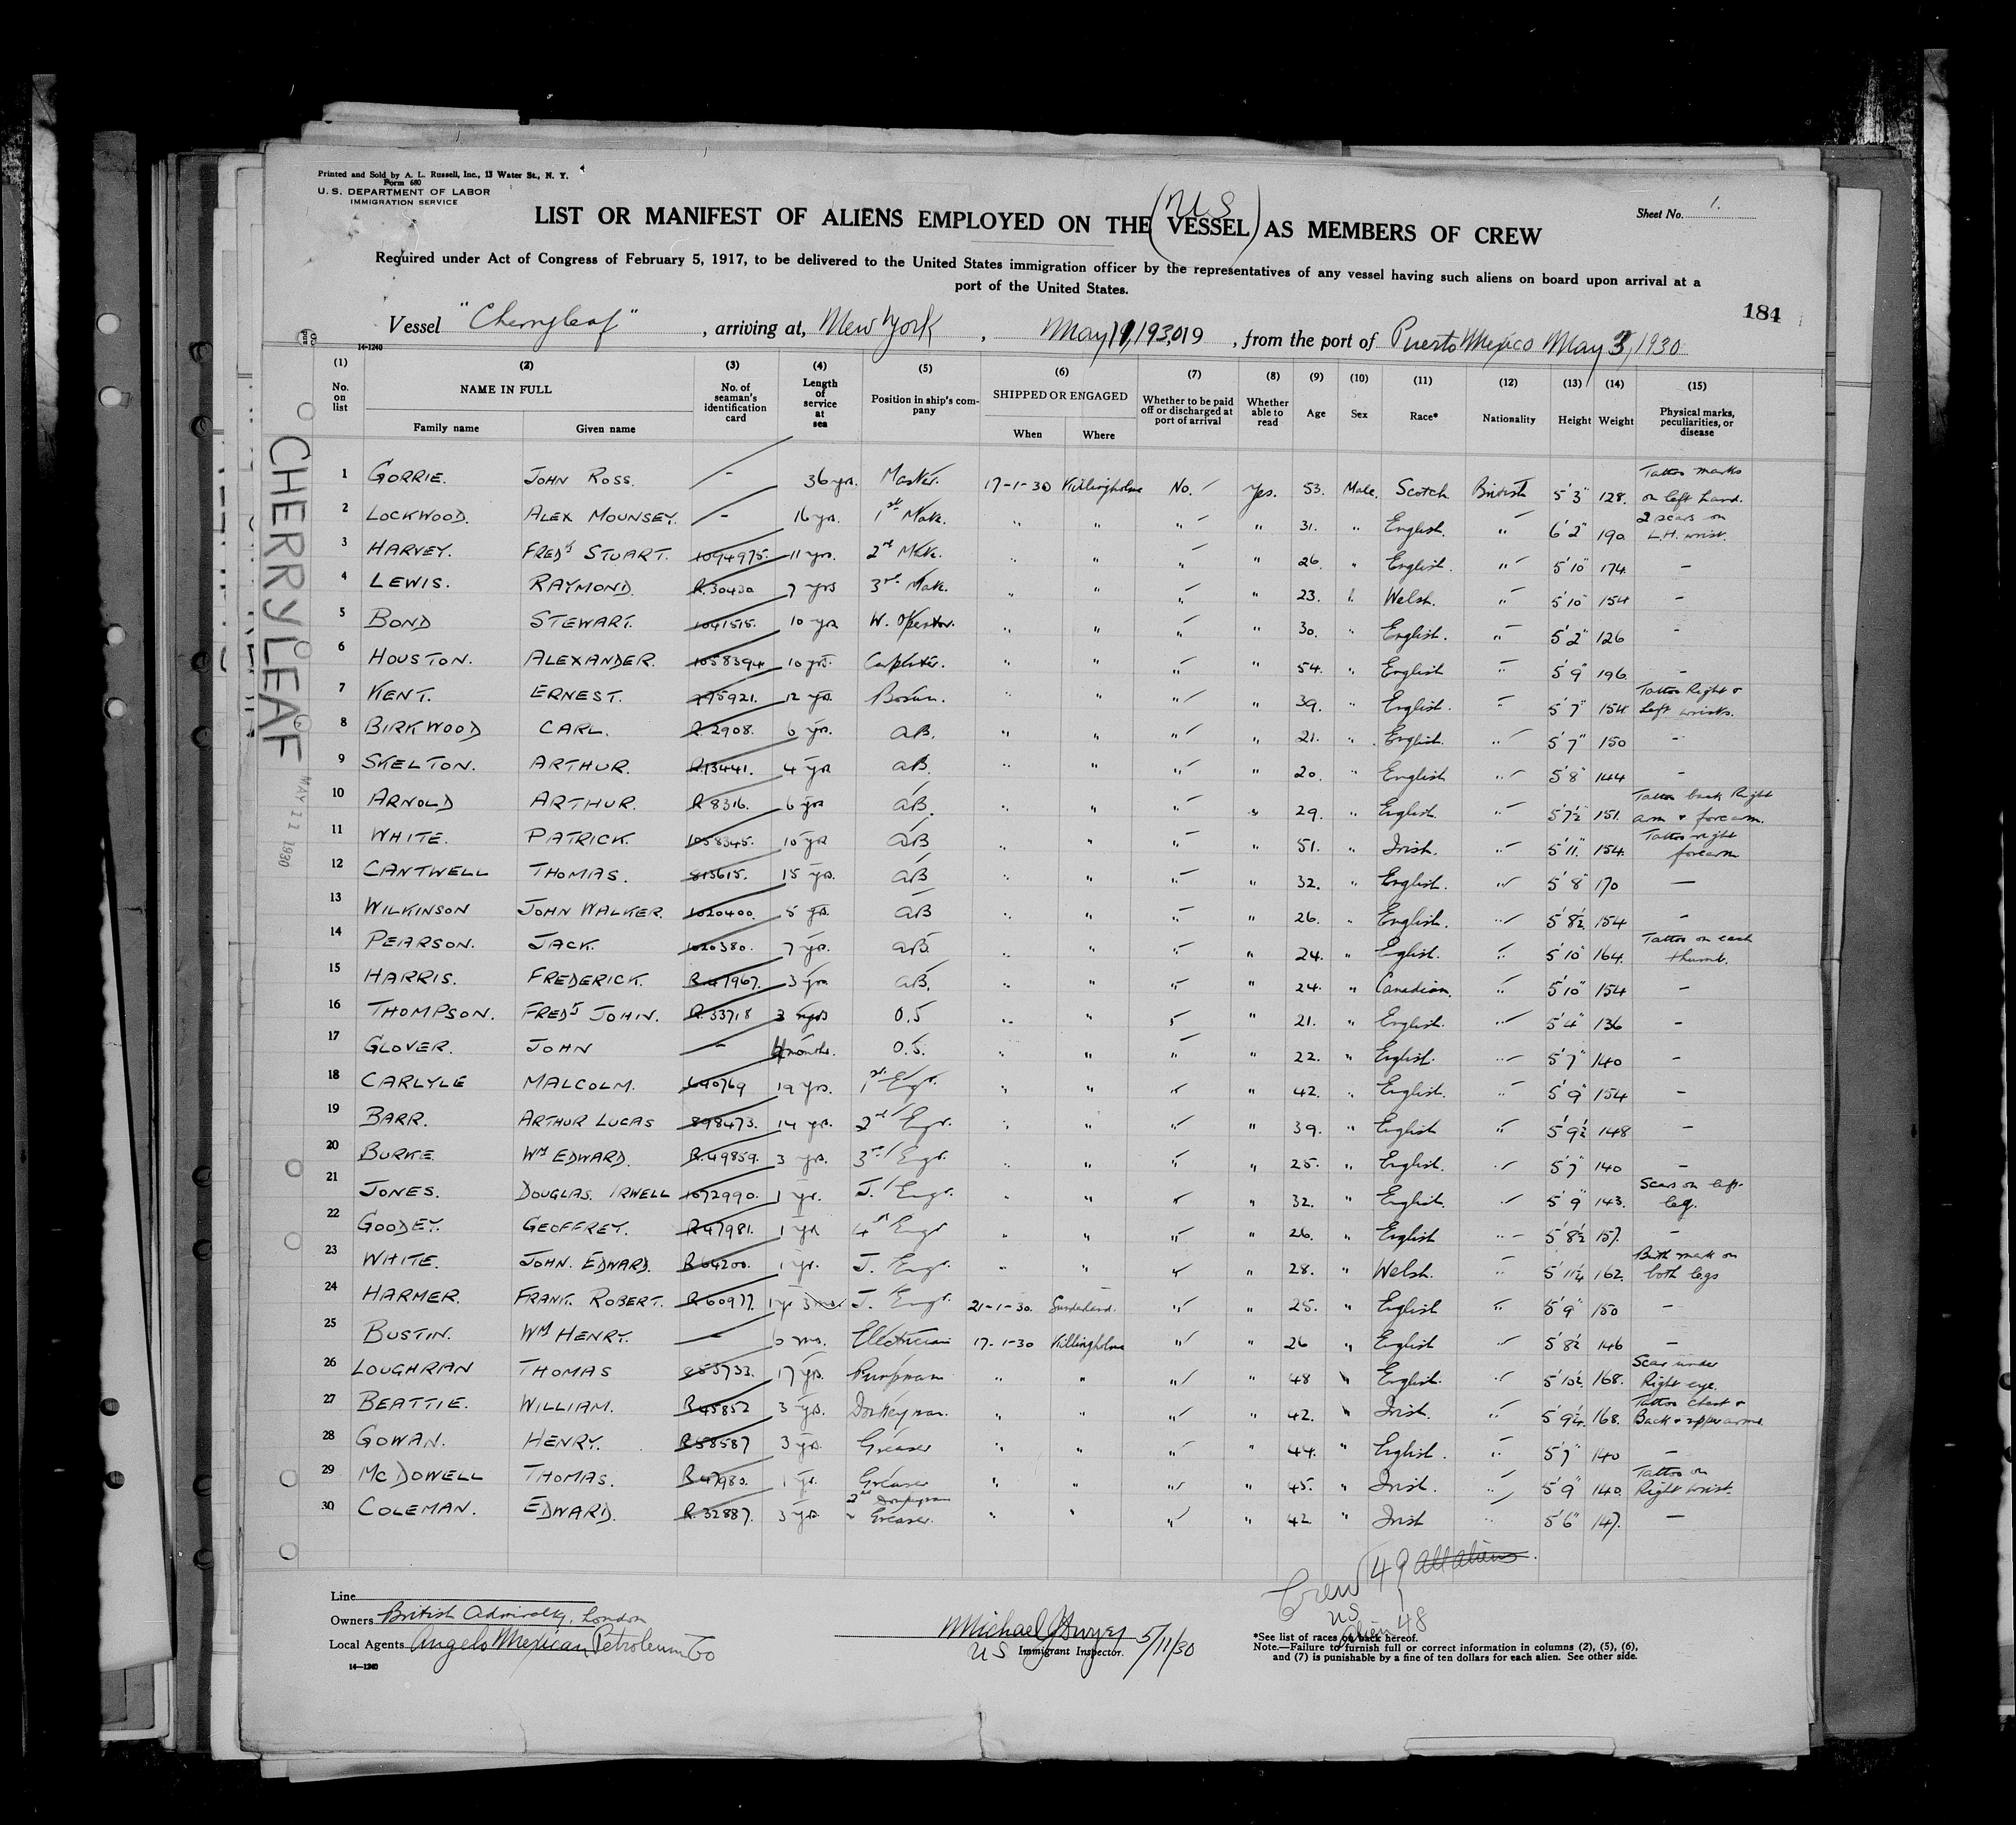 Printed and Sold by A. L. Russell, Inc., 13 Water St., N. Y.
Form 680
U. S. DEPARTMENT OF LABOR
IMMIGRATION SERVICE
Sheet No. 1.
LIST OR MANIFEST OF ALIENS EMPLOYED ON THE (VESSEL) AS MEMBERS OF CREW
U S
Required under Act of Congress of February 5, 1917, to be delivered to the United States immigration officer by the representatives of any vessel having such aliens on board upon arrival at a
port of the United States.
184
Vessel "Cherryleaf", arriving at, New York, May 11, 1930 19, from the port of Puerto Mexico May 3, 1930
14-1240
(1) (2) (3) (4) (5) (6) (7) (8) (9) (10) (11) (12) (13) (14) (15)
No. on list NAME IN FULL Family name Given name No. of seaman's identification card Length of service at sea Position in ship's company SHIPPED OR ENGAGED When Where Whether to be paid off or discharged at port of arrival Whether able to read Age Sex Race* Nationality Height Weight Physical marks, peculiarities, or disease
1 GORRIE. JOHN ROSS. – 36 yrs. Master. 17-1-30 Killingholme No. Yes. 53. Male. Scotch British 5'3" 128. Tattoo marks on left hand.
2 LOCKWOOD. ALEX MOUNSEY. – 16 yrs. 1st Mate. " " " " 31. " English. " 6'2" 190 2 scars on L.H. wrist.
3 HARVEY. FREDk STUART. 1094975. 11 yrs. 2nd Mate. " " " " 26. " English. " 5'10" 174 –
4 LEWIS. RAYMOND. R.30430 7 yrs 3rd Mate. " " " " 23. " Welsh. " 5'10" 154 –
5 BOND STEWART. 1041515. 10 yrs W. Operator. " " " " 30. " English. " 5'2" 126 –
6 HOUSTON. ALEXANDER. 1058394 10 yrs. Carpenter. " " " " 54. " English " 5'9" 196 –
7 KENT. ERNEST. 795921. 12 yrs. Bosun. " " " " 39. " English. " 5'7" 154 Tattoo Right & Left wrists.
8 BIRKWOOD CARL. R.2908. 6 yrs. AB. " " " " 21. " English. " 5'7" 150 –
9 SKELTON. ARTHUR. R.13441. 4 yrs AB. " " " " 20. " English " 5'8" 144 –
10 ARNOLD ARTHUR. R.8316. 6 yrs AB. " " " " 29. " English. " 5'7½ 151. Tattoo back Right arm & forearm.
11 WHITE. PATRICK. 1058345. 10 yrs AB " " " " 51. " Irish. " 5'11" 154. Tattoo right forearm
12 CANTWELL THOMAS. 815615. 15 yrs. AB " " " " 32. " English. " 5'8" 170 –
13 WILKINSON JOHN WALKER. 1020400. 5 yrs. AB " " " " 26. " English. " 5'8½ 154 –
14 PEARSON. JACK. 1020380. 7 yrs. AB. " " " " 24. " English. " 5'10" 164. Tattoo on each thumb.
15 HARRIS. FREDERICK. R.47967. 3 yrs AB. " " " " 24. " Canadian. " 5'10" 154 –
16 THOMPSON. FREDk JOHN. R.33718 3 yrs O.S " " " " 21. " English. " 5'4" 136 –
17 GLOVER. JOHN – 4 months. O.S. " " " " 22. " English. " 5'7" 140 –
18 CARLYLE MALCOLM. 640769 19 yrs. 1st Engr. " " " " 42. " English. " 5'9" 154 –
19 BARR. ARTHUR LUCAS 898473. 14 yrs. 2nd Engr. " " " " 39. " English " 5'9½ 148 –
20 BURKE Wm EDWARD. R.49859. 3 yrs. 3rd Engr. " " " " 25. " English. " 5'7" 140 –
21 JONES. DOUGLAS. IRWELL 1072990. 1 yr. J. Engr. " " " " 32. " English. " 5'9" 143. Scar on left leg.
22 GOODEY. GEOFFREY. R47981. 1 yr 4th Engr " " " " 26. " English " 5'8½ 157. –
23 WHITE. JOHN. EDWARD. R64200. 1 yr. J. Engr. " " " " 28. " Welsh. " 5'11¼ 162. Birth mark on both legs
24 HARMER. FRANK. ROBERT. R60977. 1 yr 3 mos J. Engr. 21-1-30. Sunderland. " " 25. " English " 5'9" 150 –
25 BUSTIN. Wm HENRY. – 6 ms. Electrician 17-1-30 Killingholme " " 26 " English " 5'8½ 146 –
26 LOUGHRAN THOMAS 853733. 17 yrs. Pumpman " " " " 48 " English. " 5'10½ 168. Scar under Right eye.
27 BEATTIE. WILLIAM. R45852 3 yrs. Donkeyman. " " " " 42. " Irish. " 5'9¼ 168. Tattoo Chest & Back & upper arms.
28 GOWAN. HENRY. R58587 3 yrs. Greaser " " " " 44. " English. " 5'7" 140 –
29 McDOWELL THOMAS. R47980. 1 yr. Greaser " " " " 45. " Irish. " 5'9" 140 Tattoo on Right wrist.
30 COLEMAN. EDWARD. R.32887. 3 yrs 2nd Donkeyman " Greaser. " " " " 42. " Irish " 5'6" 147. –
CHERRYLEAF
MAY 11 1930
Crew 49 All aliens.
US 1
Alien 48
Line
Owners British Admiralty, London
Local Agents Anglo Mexican Petroleum Co
14—1240
Michael J Dwyer 5/11/30
US Immigrant Inspector.
*See list of races on back hereof.
Note.—Failure to furnish full or correct information in columns (2), (5), (6),
and (7) is punishable by a fine of ten dollars for each alien. See other side.